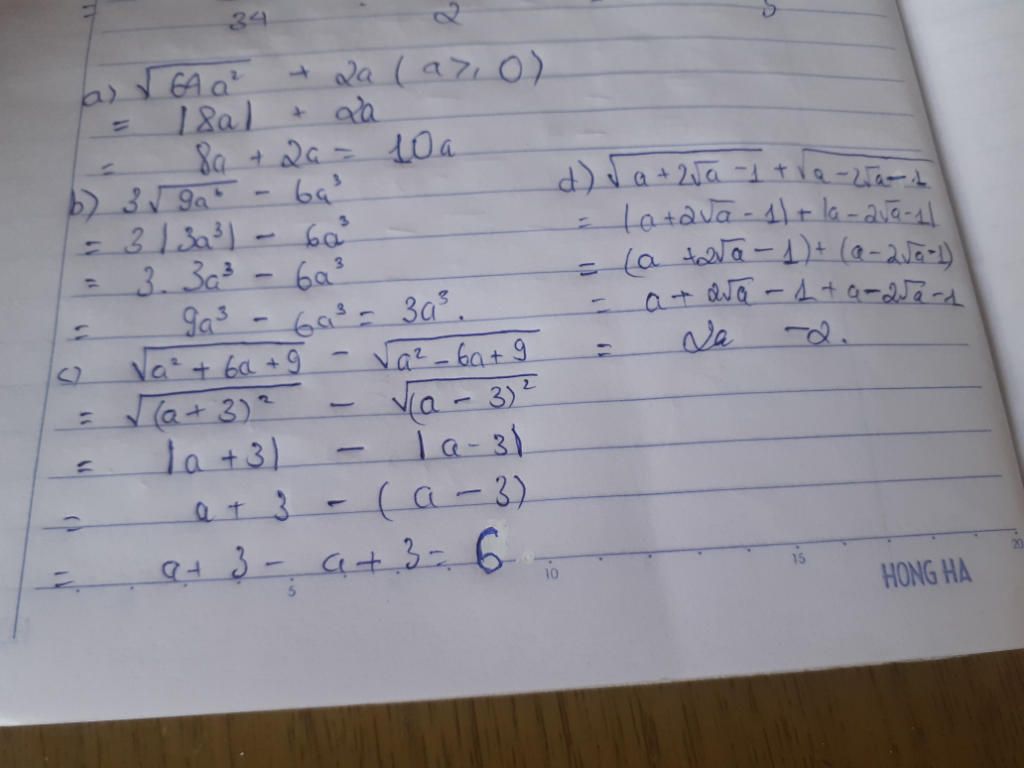 = 34 2 5
a) √64a² + 2a (a ≥ 0)
= |8a| + 2a
= 8a + 2a = 10a
b) 3√9a⁶ - 6a³
= 3|3a³| - 6a³
= 3. 3a³ - 6a³
= 9a³ - 6a³ = 3a³.
c) √a² + 6a + 9 - √a² - 6a + 9
= √(a + 3)² - √(a - 3)²
= |a + 3| - |a - 3|
= a + 3 - (a - 3)
= a + 3 - a + 3 = 6
d) √a + 2√a - 1 + √a - 2√a - 1
= |a + 2√a - 1| + |a - 2√a - 1|
= (a + 2√a - 1) + (a - 2√a - 1)
= a + 2√a - 1 + a - 2√a - 1
= 2a - 2.
5 10 15 20
HONG HA